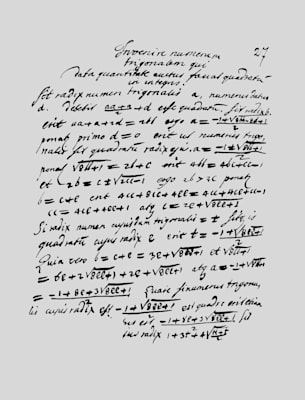 27
Invenire numerum
trigonalem qui
data quantitate auctus faciat quadratum
in integris.
Sit radix numeri trigonalis a, numerus datus
d. debebit (aa+a)/2 + d esse quadratum, sit radix b.
erit aa+a+2d=2bb ergo a=
ponat primo d=0 erit ut numerus trigo-
nalis sit quadratum radix ejus, a = (-1±√8bb+1)/2
ponat √8bb+1 = 2b+c erit 4bb = 4bc+cc-1
et 2b = c±√2cc-1 ergo 2b>2c ponat
b=c+e erit 4cc+8ce+4ee=4cc+4ce+cc-1
cc=4ce+4ee+1 atq c=2e+√8ee+1
Si radix numeri cujusdam trigonalis = t sitq, is
quadratum cujus radix e erit t = (-1+√8ee+1)/2
Quia vero b=c+e=3e+√8ee+1 et √8bb+1
=6e+2√8ee+1+2e+√8ee+1 atq a=(-1+√8bb+1)/2
= (-1+8e+3√8ee+1)/2 Quare si numerus trigona-
lis cujus radix est (-1+√8ee+1)/2 est quadr. erit etiam
cujus est (-1+8e+3√8ee+1)/2 sit
radix 1+3t+4√